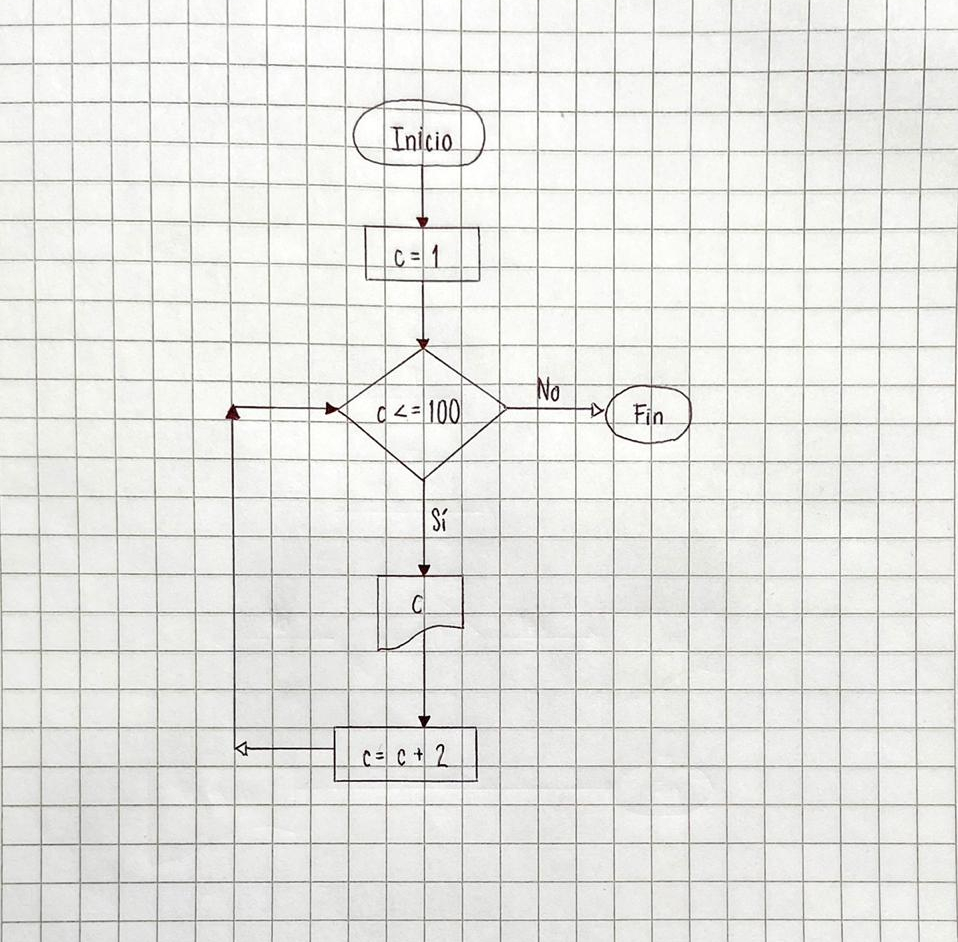 Inicio
c = 1
c <= 100
No
Fin
Sí
c
c = c + 2